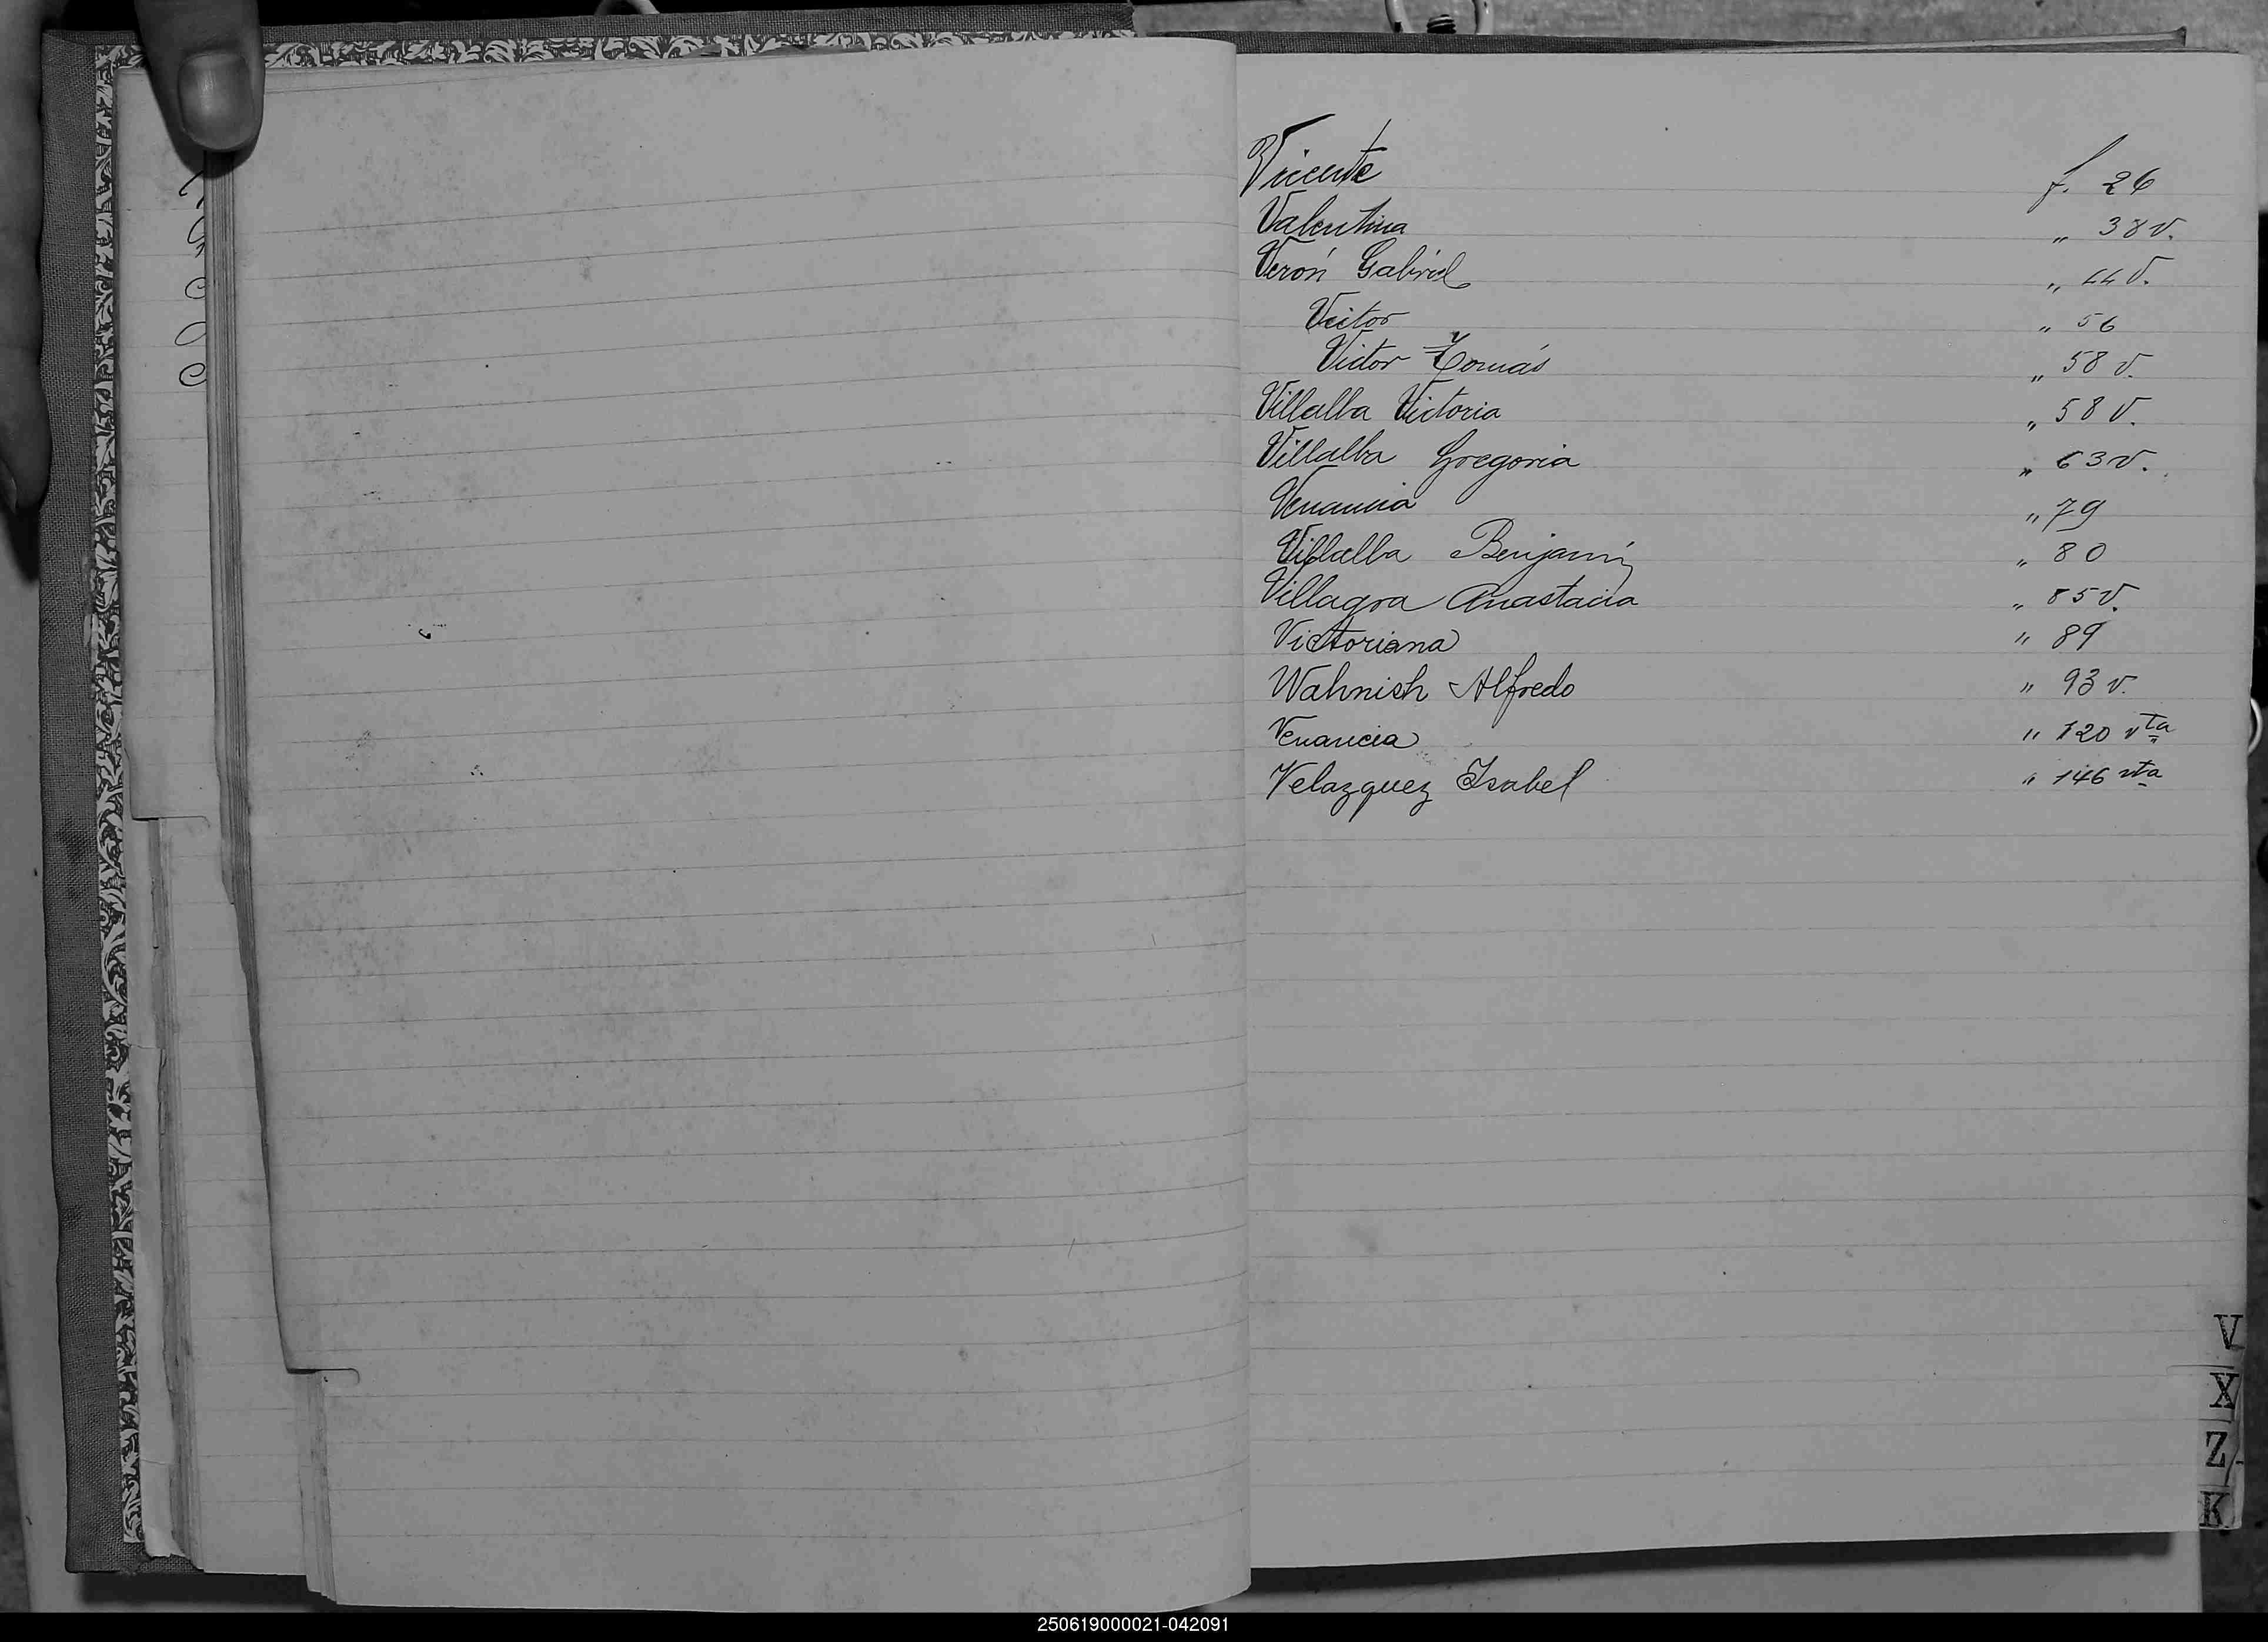 Vicente f. 26
Valentina " 38 v.
Verón Gabriel " 44 v.
Victor " 56
Victor Tomás " 58 v.
Villalba Victoria " 58 v.
Villalba Gregoria " 63 v.
Venancia " 79
Villalba Benjamín " 80
Villagra Anastacia " 85 v.
Victoriana " 89
Wahnish Alfredo " 93 v.
Venancia " 120 vta
Velazquez Isabel " 146 vta
V
X
Z
K
250619000021-042091